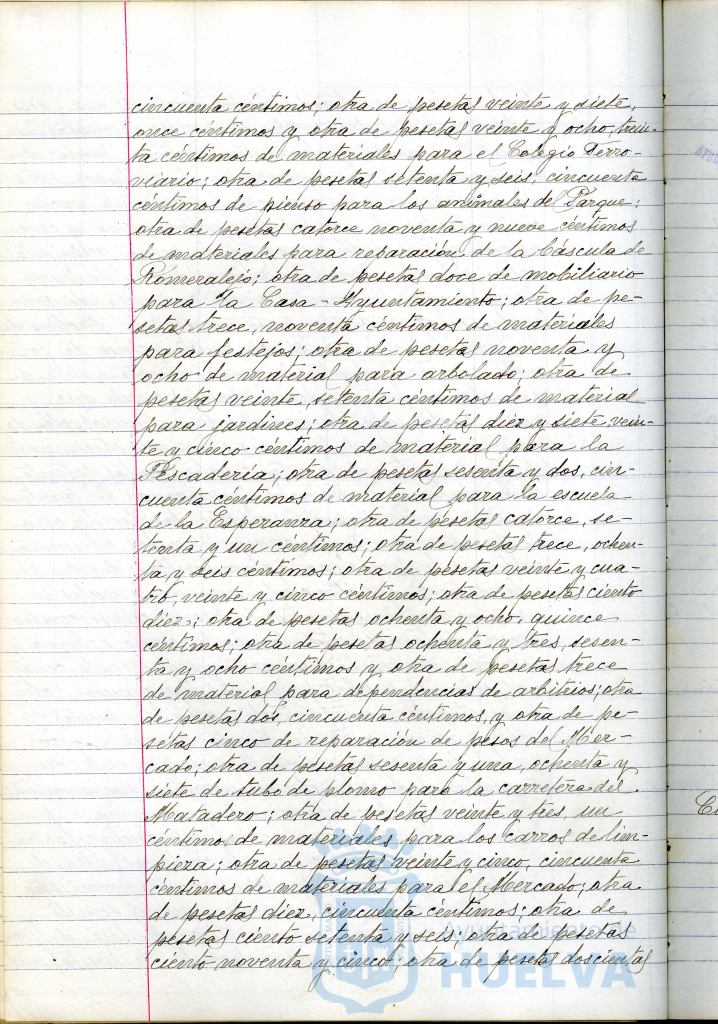 cincuenta céntimos; otra de pesetas veinte y siete,
once céntimos y otra de pesetas veinte y ocho, trein-
ta céntimos de materiales para el Colegio Ferro-
viario; otra de pesetas setenta y seis, cincuenta
céntimos de pienso para los animales del Parque;
otra de pesetas catorce noventa y nueve céntimos
de materiales para reparación de la Báscula de
Romeralejo; otra de pesetas doce de mobiliario
para la Casa-Ayuntamiento; otra de pe-
setas trece, noventa céntimos de materiales
para festejos; otra de pesetas noventa y
ocho de material para arbolado; otra de
pesetas veinte, setenta céntimos de material
para jardines; otra de pesetas diez y siete vein-
te y cinco céntimos de material para la
Pescadería; otra de pesetas sesenta y dos, cin-
cuenta céntimos de material para la escuela
de la Esperanza; otra de pesetas catorce, se-
tenta y un céntimos; otra de pesetas trece, ochen-
ta y seis céntimos; otra de pesetas veinte y cua-
tro, veinte y cinco céntimos; otra de pesetas ciento
diez; otra de pesetas ochenta y ocho, quince
céntimos; otra de pesetas ochenta y tres, sesen-
ta y ocho céntimos y otra de pesetas trece
de material para dependencias de arbitrios; otra
de pesetas dos, cincuenta céntimos, y otra de pe-
setas cinco de reparación de pesos del Mer-
cado; otra de pesetas sesenta y una, ochenta y
siete de tubo de plomo para la carretera del
Matadero; otra de pesetas veinte y tres, un
céntimos de materiales para los carros de lim-
pieza; otra de pesetas veinte y cinco, cincuenta
céntimos de materiales para el Mercado; otra
de pesetas diez, cincuenta céntimos; otra de
pesetas ciento setenta y seis; otra de pesetas
ciento noventa y cinco; otra de pesetas doscientas
Ayuntamiento de
HUELVA